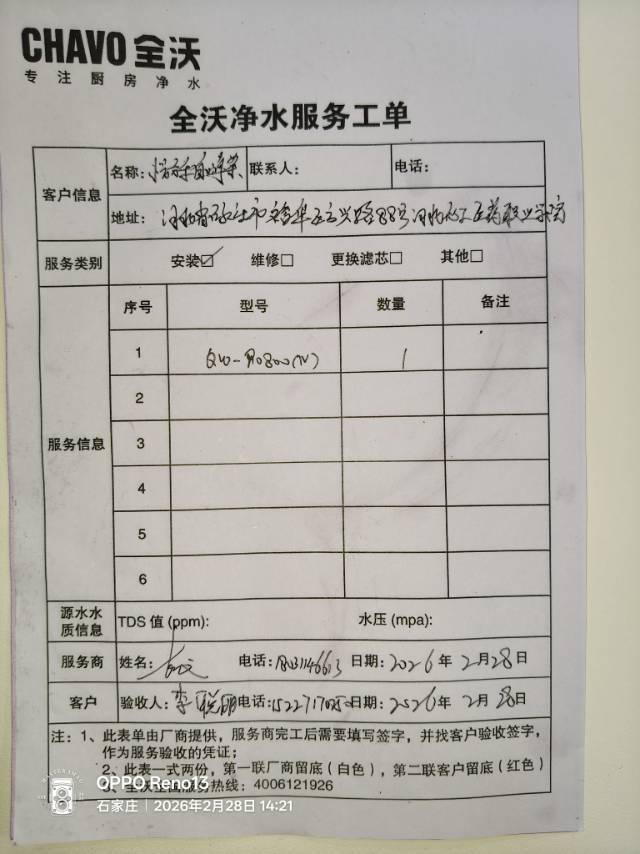 CHAVO 全沃
专注厨房净水
全沃净水服务工单
客户信息
名称:
联系人:
电话:
地址: 河北省石家庄市 88号河北化工医药职业学院
服务类别
安装☑ 维修□ 更换滤芯□ 其他□
服务信息
序号 型号 数量 备注
1 QW-RO800(N) 1
2
3
4
5
6
源水水质信息
TDS 值 (ppm): 水压 (mpa):
服务商 姓名: 电话: 日期: 2026年 2月28日
客户 验收人: 电话: 日期: 2026年 2月28日
注: 1、此表单由厂商提供，服务商完工后需要填写签字，并找客户验收签字，
作为服务验收的凭证;
2、此表一式两份，第一联厂商留底 (白色)，第二联客户留底 (红色)
全沃全国服务热线: 4006121926
OPPO Reno13
石家庄 | 2026年2月28日 14:21